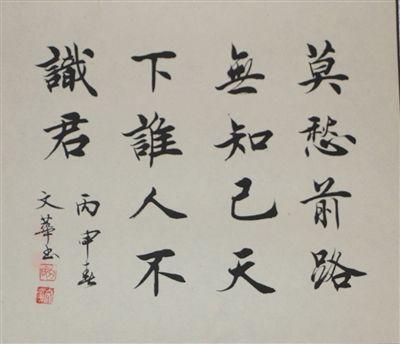 莫愁前路
無知己天
下誰人不
識君
丙申春
文華書